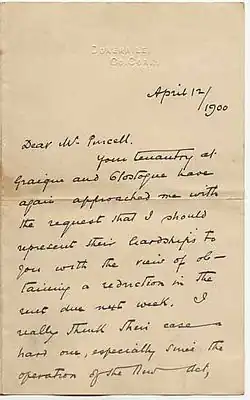 DONERAILE,
CO. CORK.
April 12/1900
Dear Mr Purcell.
Your tenantry at
Graique and Clostogue have
again approached me with
the request that I should
represent their hardships to
you with the view of ob-
taining a reduction in the
rent due next week. I
really think their case a
hard one, especially since the
operation of the New Act,